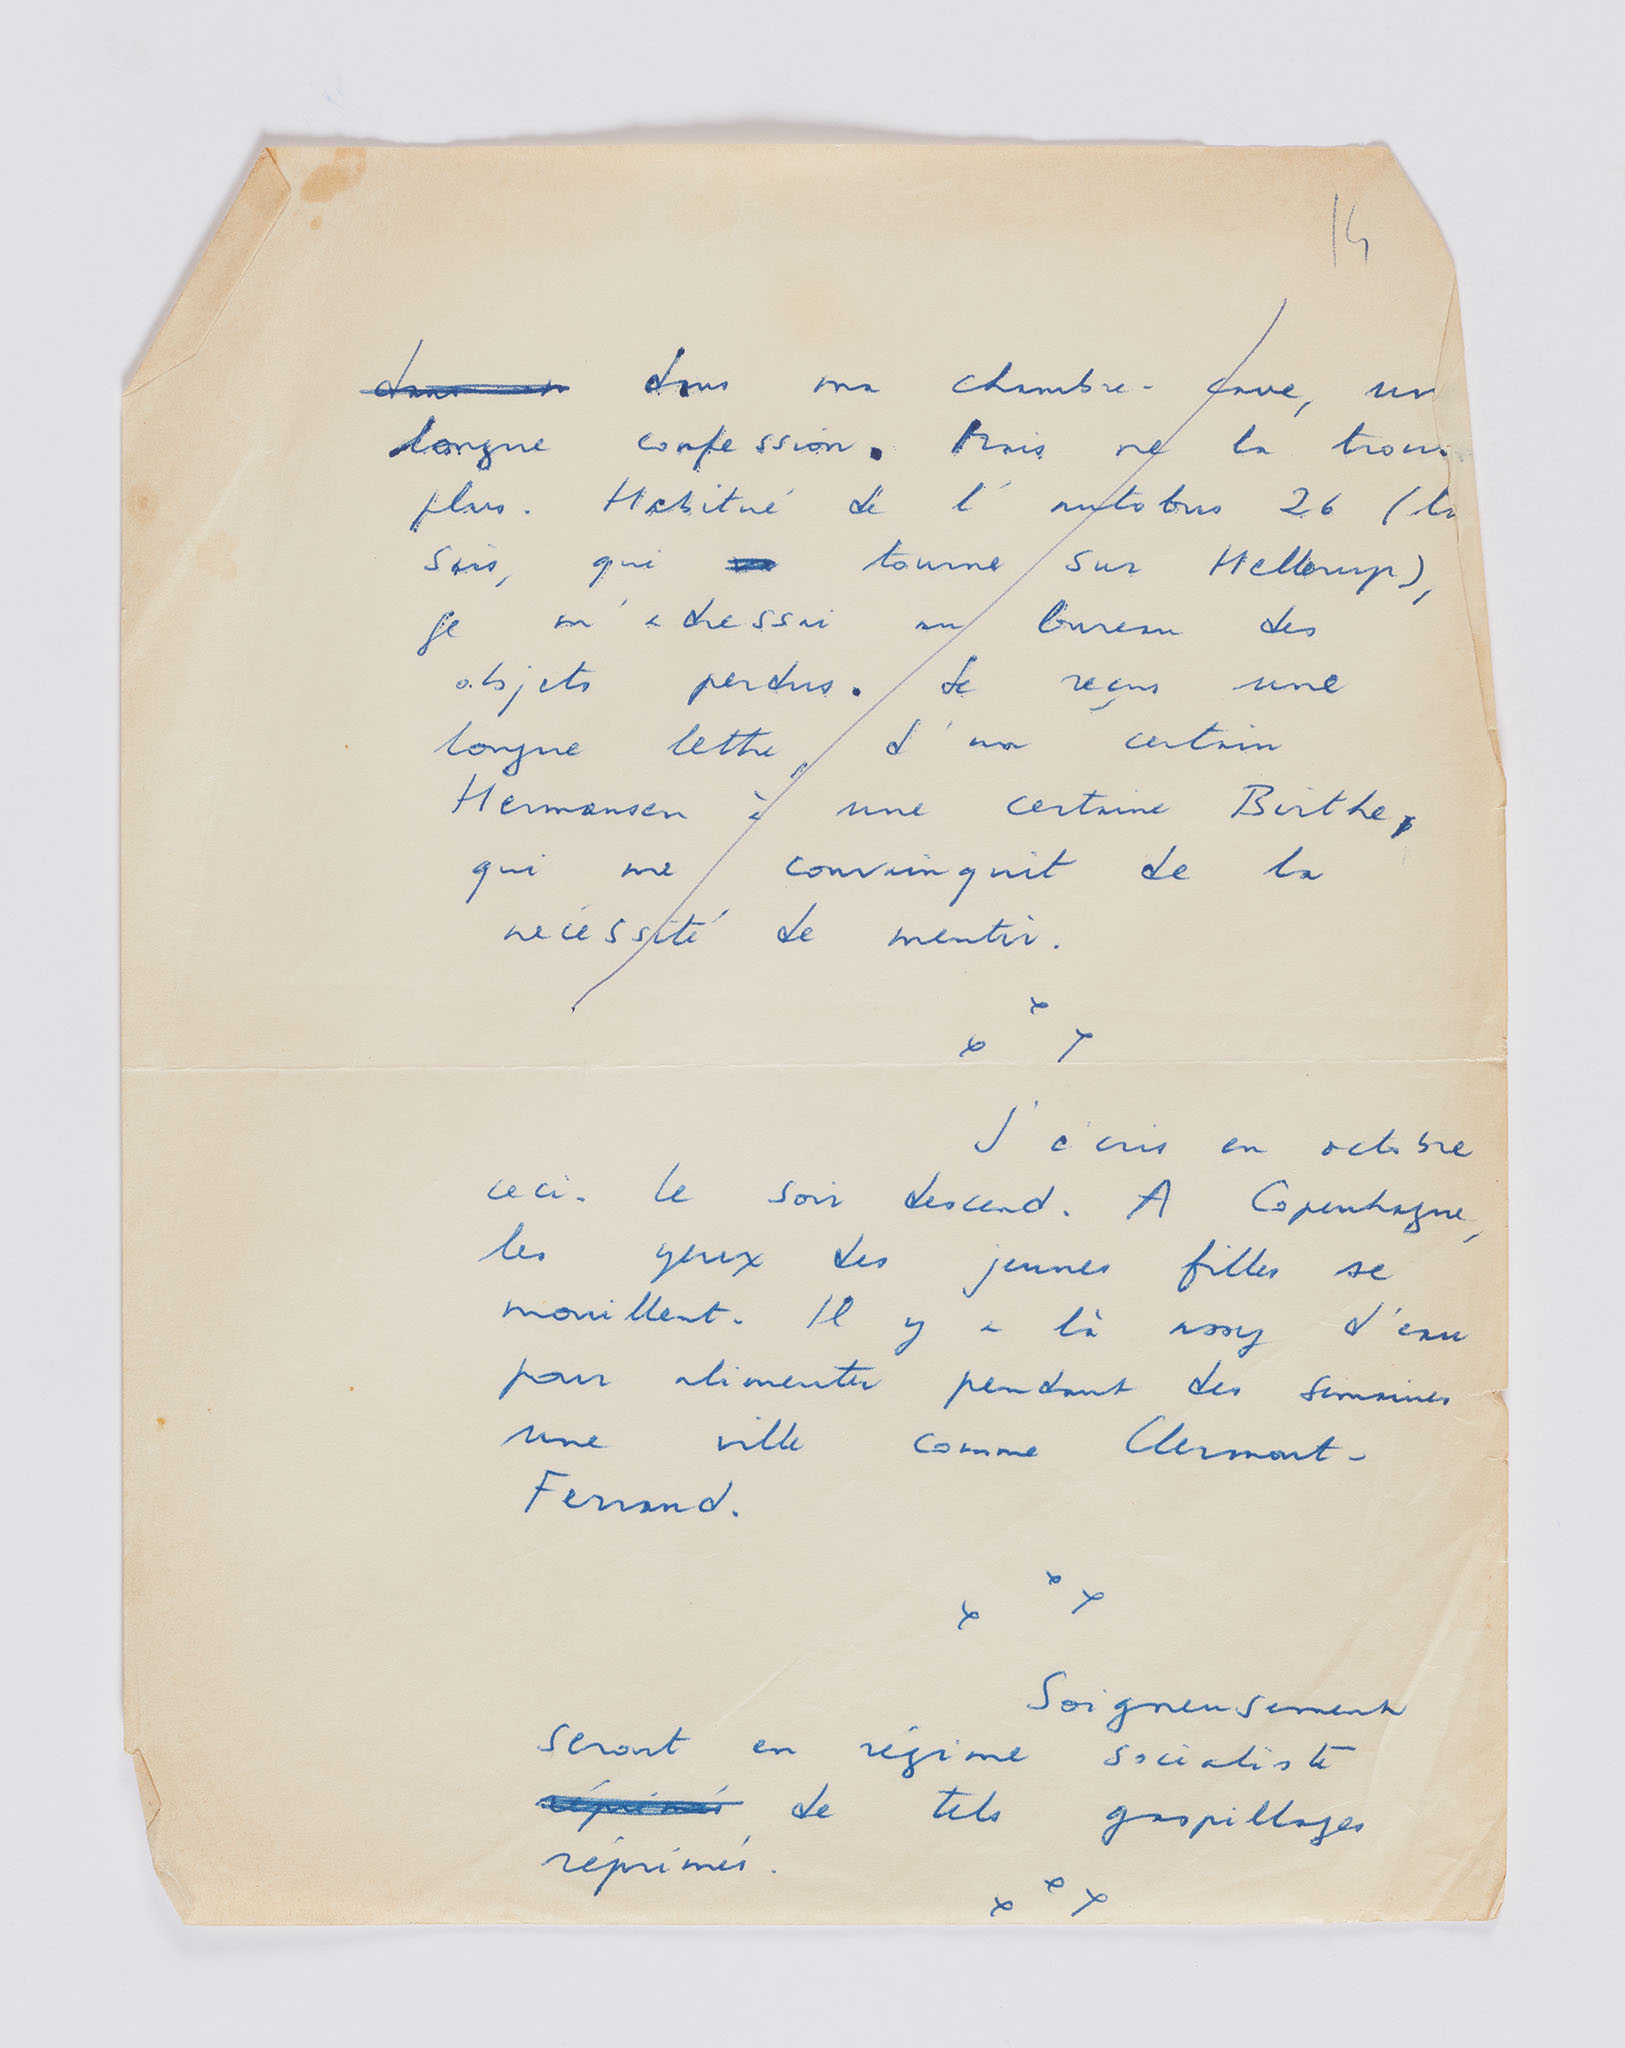 14
dans ma chambre-cave, un
longue confession. Mais ne la trou
plus. Habitué de l'autobus 26 (tu
sais, qui tourne sur Hellerup),
je m'adressai au bureau des
objets perdus. Je reçus une
longue lettre, d'un certain
Hermansen à une certaine Birthe,
qui me convainquit de la
nécessité de mentir.
x x x
J'écris en octobre
ceci. Le soir descend. A Copenhague,
les yeux des jeunes filles se
mouillent. Il y a là assez d'eau
pour alimenter pendant des semaines
une ville comme Clermont-
Ferrand.
x x x
Soigneusement
seront en régime socialiste
réprimés de tels gaspillages
réprimés.
x x x